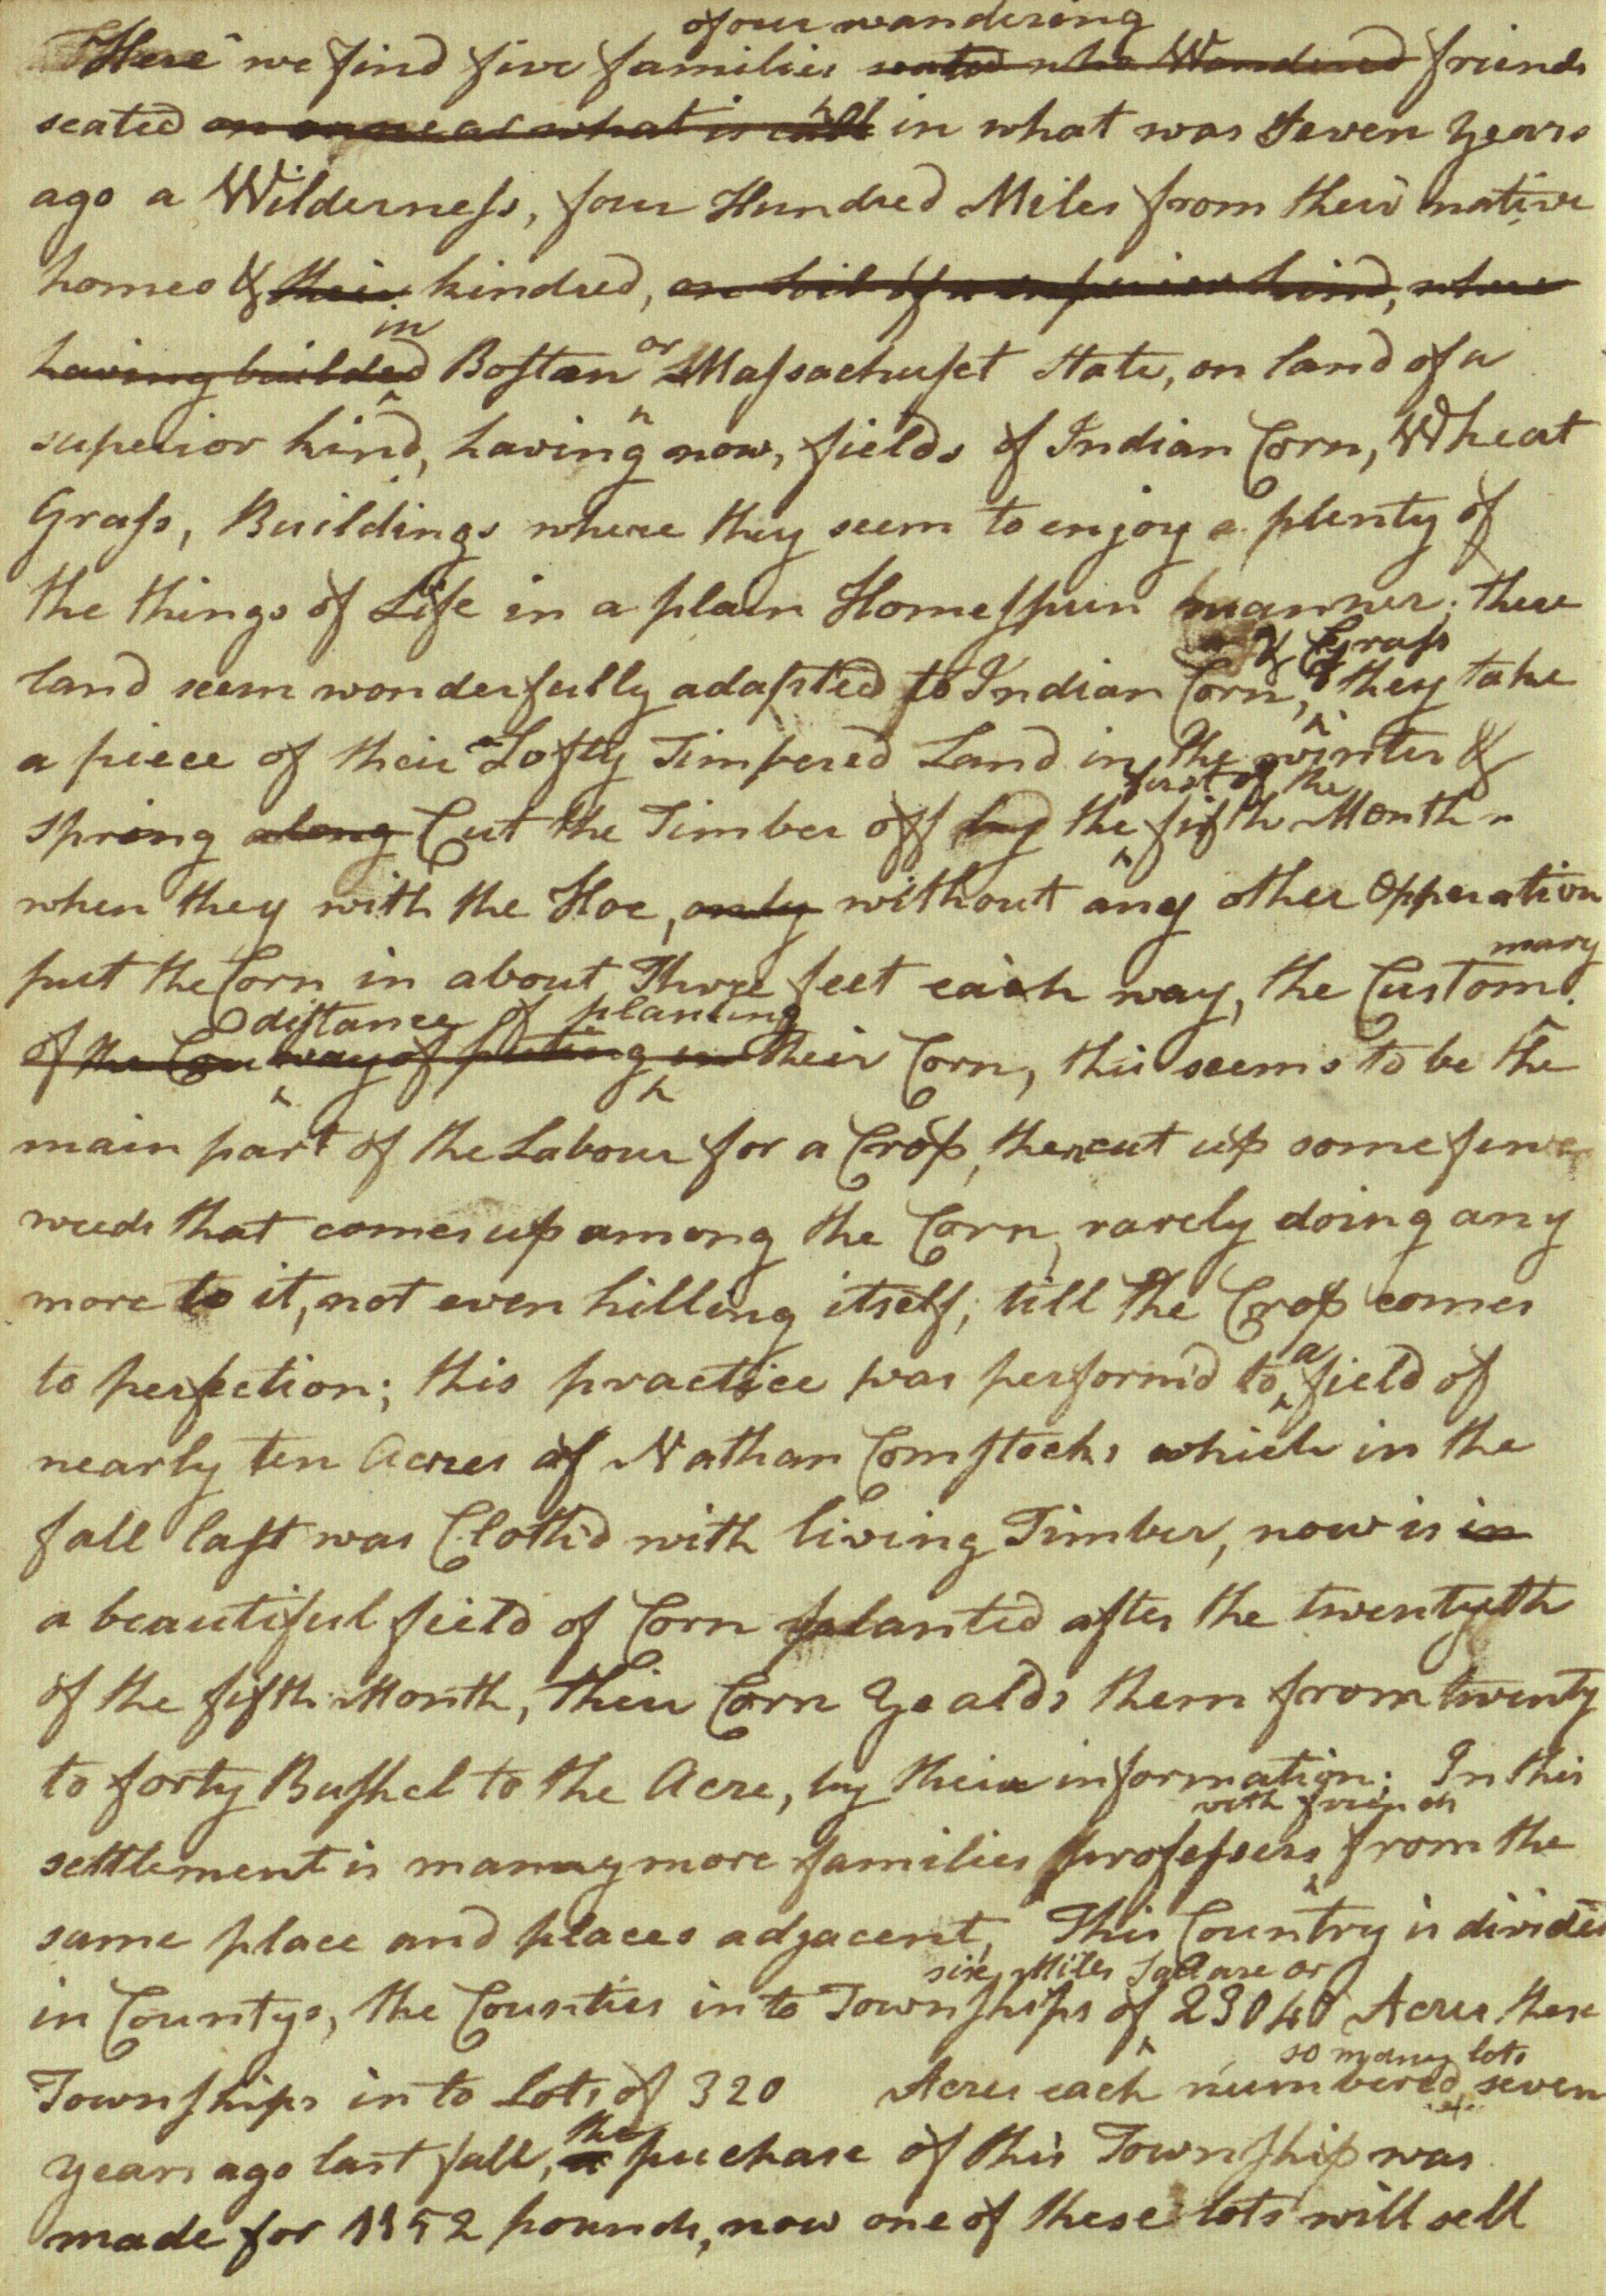 Here we find five families of our wandering friends
seated in what was Seven years
ago a Wilderness, four Hundred Miles from their native
homes & their kindred, on soil of a superior kind, where
having builded in Boston or Massachuset State, on land of a
superior kind, having now, fields of Indian Corn, Wheat
Grass, Buildings where they seem to enjoy a plenty of
the things of Life in a plain Homespun manner; there
land seem wonderfully adapted to Indian Corn, & Grass they take
a piece of their Lofty Timbered Land in the winter &
spring along Cut the Timber off by the first of the fifth Month
when they with the Hoe, only without any other Opperation
put the Corn in about Three feet each way, the Custommary
distance of planting their Corn, this seems to be the
main part of the Labour for a Crop, then cut up some few
weeds that comes up among the Corn, rarely doing any
more to it, not even hilling itself, till the Crop comes
to perfection; this practice was perform'd to a field of
nearly ten Acres of Nathan Comstocks which in the
fall last was Cloth'd with living Timber, now is in
a beautiful field of Corn planted after the twentyeth
of the fifth Month, their Corn Yealds them from twenty
to forty Bushel to the Acre, by their information; In this
settlement is manny more families professers with friends from the
same place and places adjacent, This Country is divided
in Countys, the Counties into Townships of six Miles Square or 23040 Acres these
Townships in to Lots of 320 Acres each numbered so many lots seven
years ago last fall, the puchase of this Township was
made for 1152 pounds, now one of these lots will sell